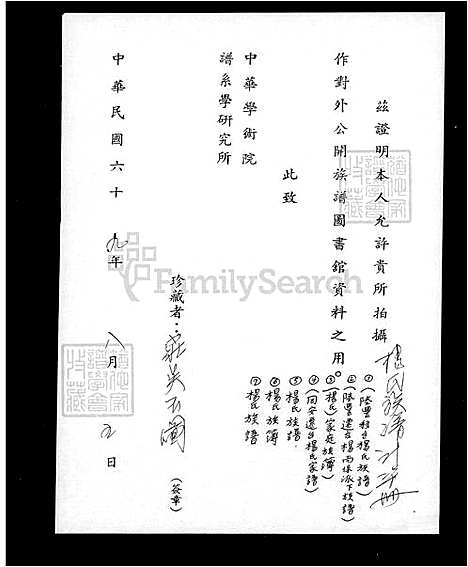 茲證明本人允許貴所拍攝楊氏族譜計 冊
作對外公開族譜圖書館資料之用。
(陸豐 楊氏族譜)
②(陸豐遷台楊 派下族譜)
③(楊氏)家庭族簿
④(同安遷台楊氏家譜)
⑤楊氏族譜.
⑥楊氏族簿
⑦楊氏族譜
此致
中華學術院
譜系學研究所
珍藏者:莊吳玉 (簽章)
中華民國六十九年八月 日
FamilySearch